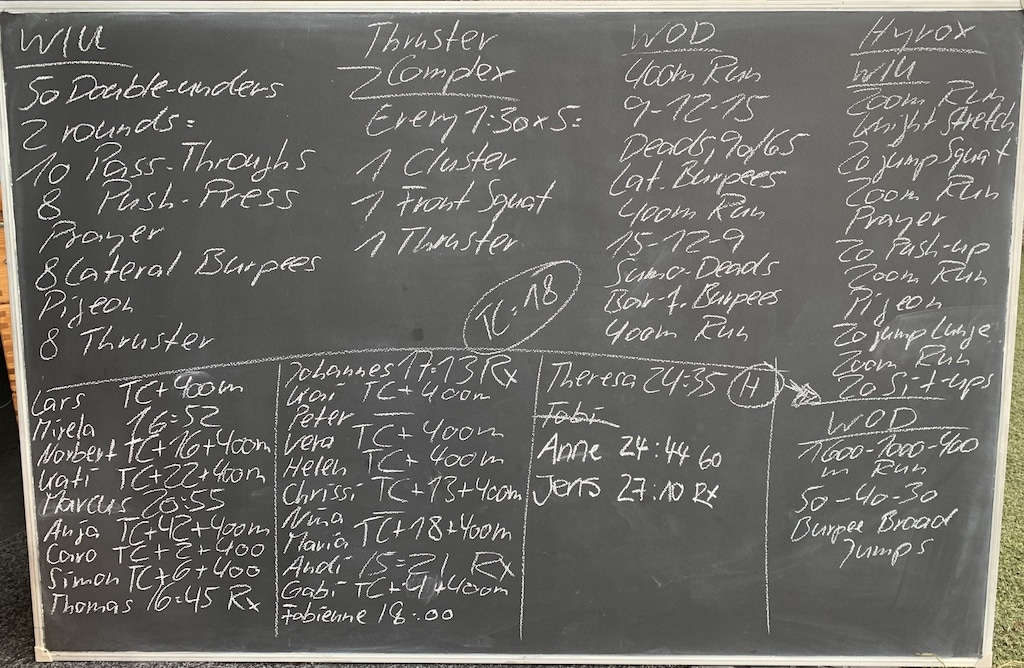 WIU
50 Double-unders
2 rounds:
10 Pass-Throughs
8 Push-Press
Prayer
8 Lateral Burpees
Pigeon
8 Thruster
Thruster
Complex
Every 1:30 x 5:
1 Cluster
1 Front Squat
1 Thruster
TC=18
WOD
400m Run
9-12-15
Deads, 90/65
Lat. Burpees
400m Run
15-12-9
Sumo-Deads
Bar-f. Burpees
400m Run
Hyrox
WIU
200m Run
Knight Stretch
20 jump Squat
200m Run
Prayer
20 Push-up
200m Run
Pigeon
20 jump Lunge
200m Run
20 Sit-ups
WOD
1600-1000-400
m Run
50-40-30
Burpee Broad
Jumps
Lars TC+400m
Mirela 16:52
Norbert TC+16+400m
Kati TC+22+400m
Marcus 20:55
Anja TC+42+400m
Caro TC+2+400
Simon TC+6+400
Thomas 16:45 Rx
Johannes 17:13 Rx
TC+400m
Peter —
Vera TC+400m
Helen TC+400m
Chrissi TC+13+400m
Nina —
Maria TC+18+400m
Andi 15:21 Rx
Gabi TC+9+400m
Fabienne 18:00
Theresa 24:35 H
Tobi
Anne 24:44 60
Jens 27:10 Rx